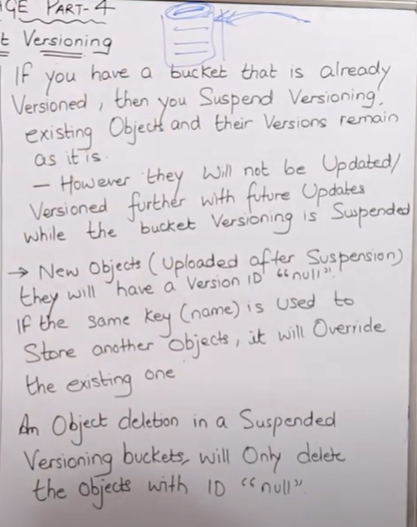 GE PART-4
t Versioning
If you have a bucket that is already
Versioned, then you Suspend Versioning,
existing Objects and their Versions remain
as it is.
- However they will not be Updated/
Versioned further with future Updates
while the bucket Versioning is Suspended
→ New Objects (Uploaded after Suspension)
they will have a Version ID "null".
If the same key (name) is used to
Store another objects, it will Override
the existing one
An Object deletion in a Suspended
Versioning buckets, will Only delete
the Objects with ID "null"